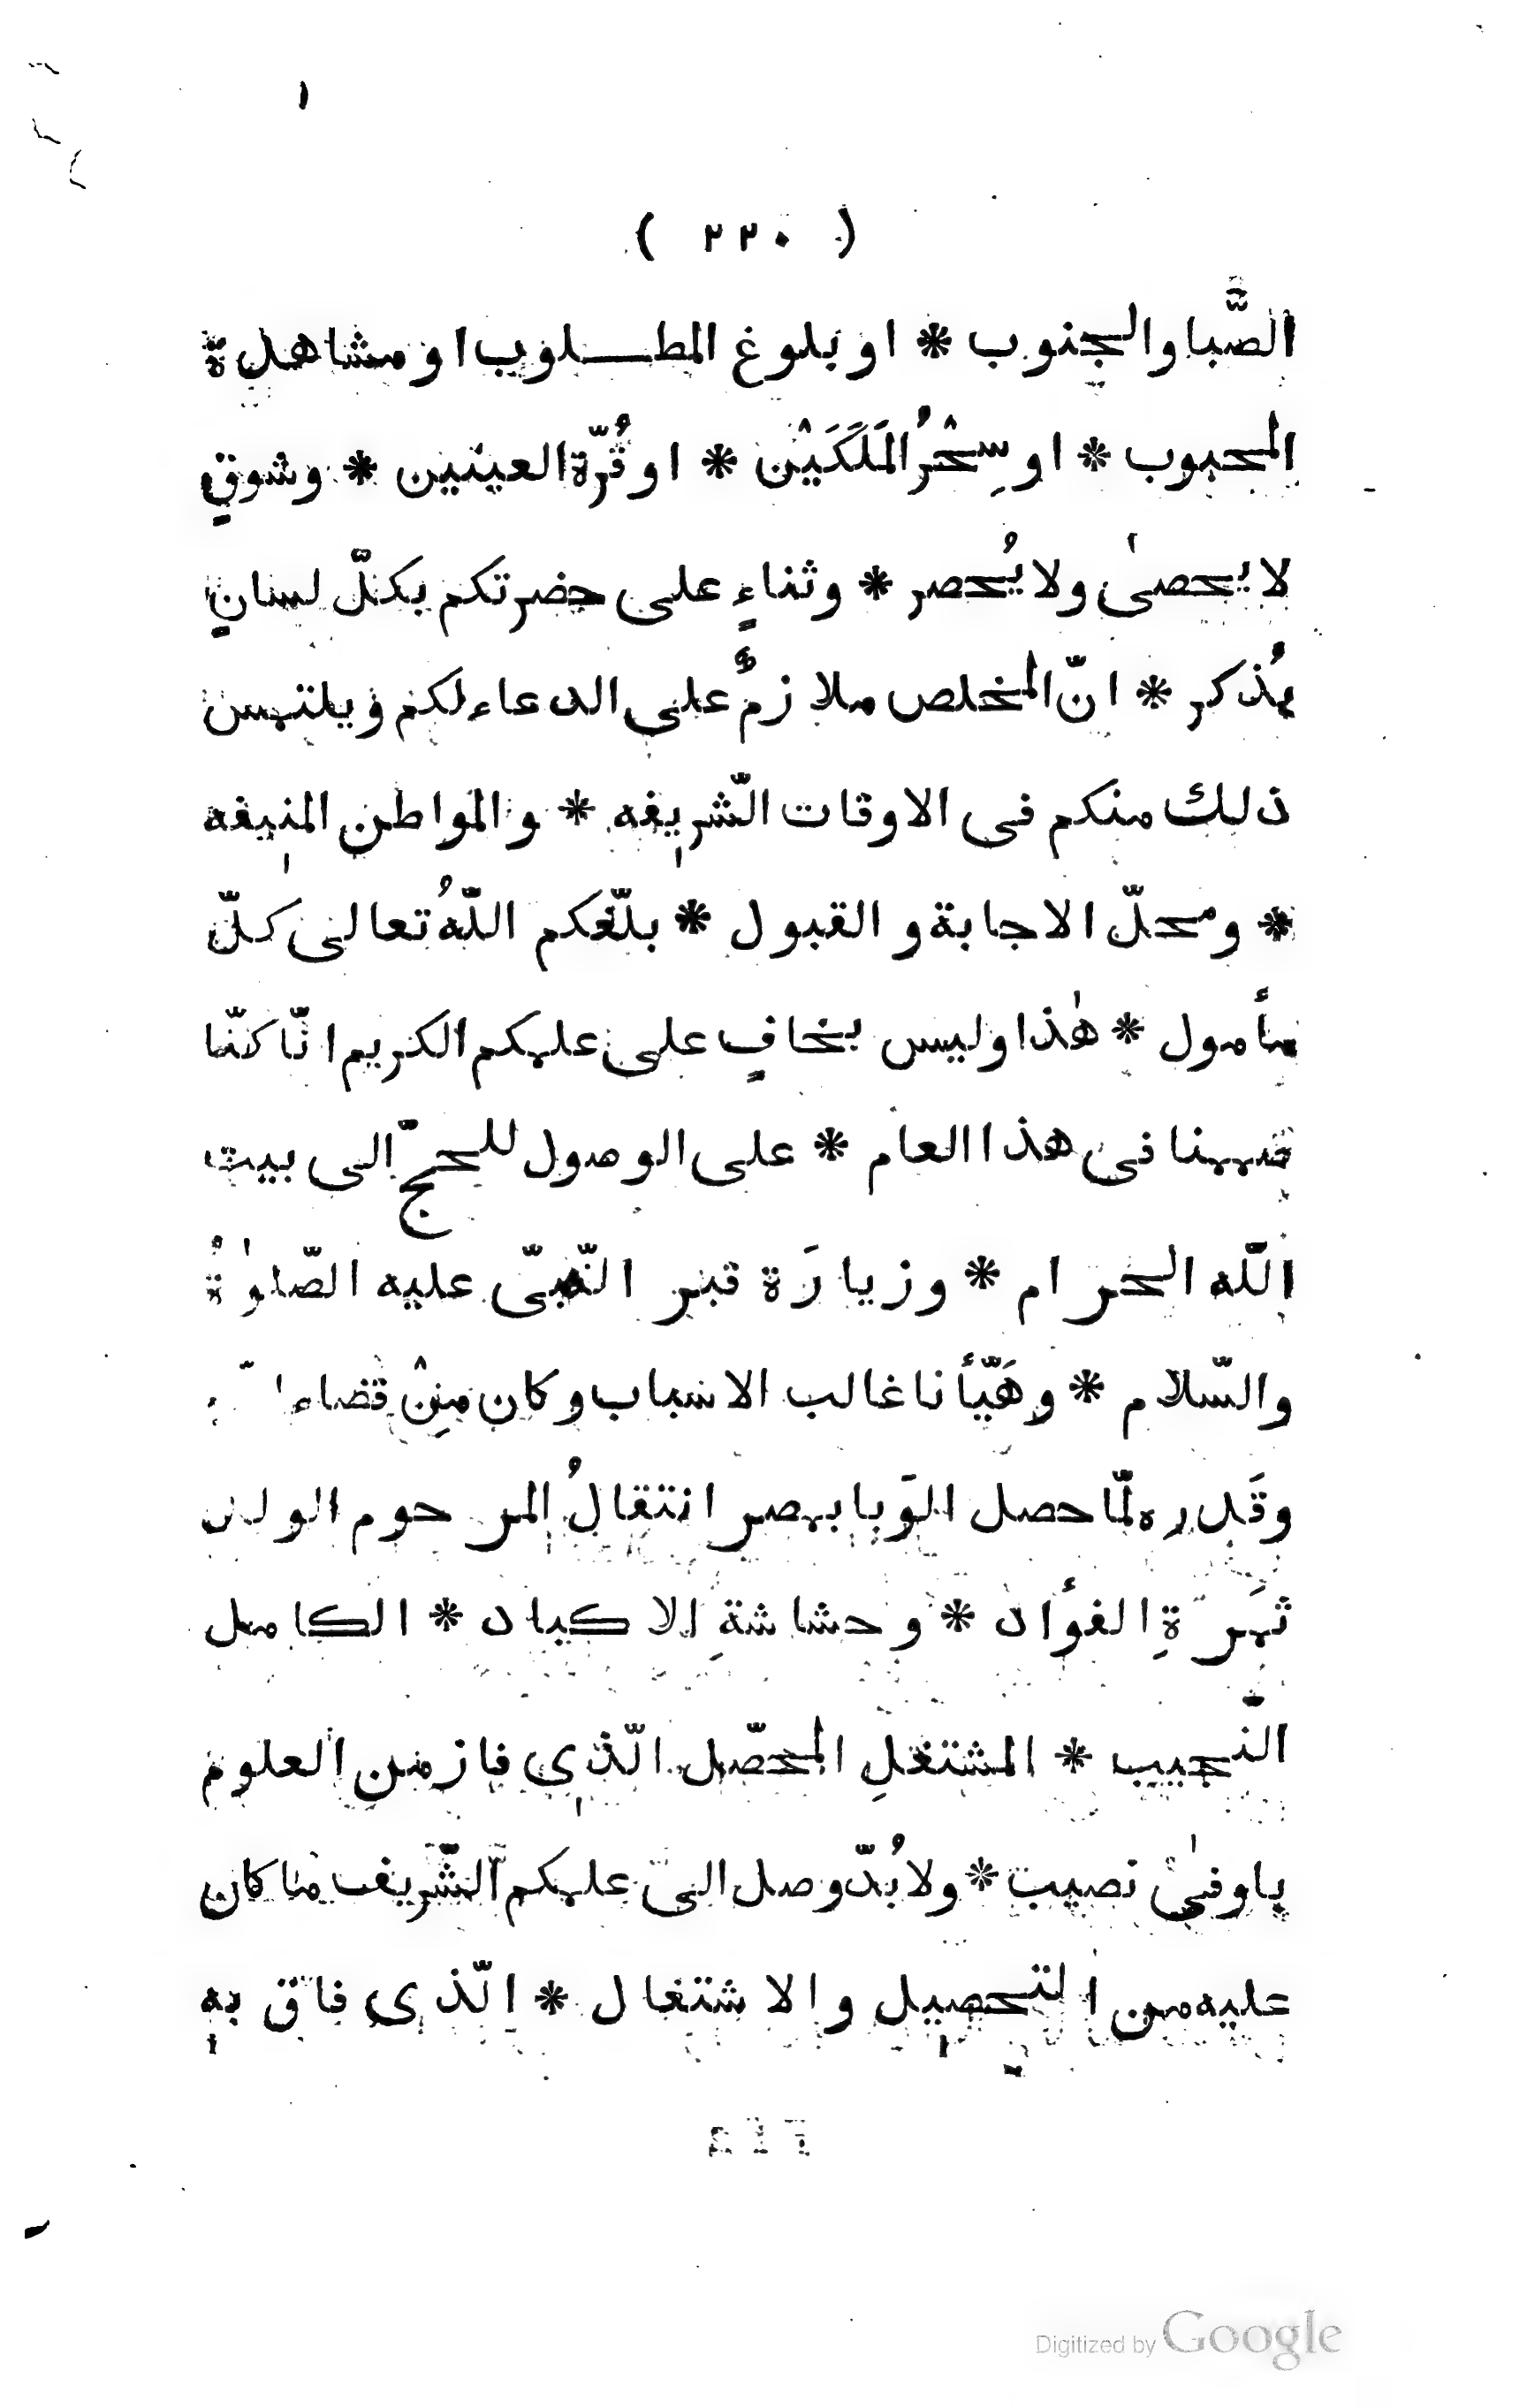 ( ٢٢٠ )
الصَّبا والجنوب * او بلوغ المطلوب او مشاهدة
المحبوب * او سِحْرُ المَلَكَيْن * او قُرّة العينين * وشوقٍ
لا يحصىٰ ولا يُحصر * وثناءٍ على حضرتكم بكلّ لسانٍ
يُذكر * انّ المخلص ملازمٌ على الدعاء لكم ويلتمس
ذلك منكم فى الاوقات الشّريفه * والمواطن المنيفه
* ومحلّ الاجابة والقبول * بلّغكم اللّهُ تعالى كلّ
مأمول * هٰذا وليس بخافٍ على علمكم الكريم انّا كنّا
صممنا فى هذا العام * على الوصول للحجّ الى بيت
اللّه الحرام * وزيارَة قبر النّبىّ عليه الصّلوٰةُ
والسّلام * وهَيّأنا غالب الاسباب وكان مِنْ قضاء
وقَدره لمّا حصل الوَبا بمصر انتقالُ المرحوم الولد
ثمَرةِ الفؤاد * وحشاشةِ الاكباد * الكامل
النّجيب * المشتغلِ المحصّل الّذى فاز من العلوم
باوفىٰ نصيب * ولابُدّ وصل الى علمكم الشّريف ما كان
عليه من التحصيل والاشتغال * الّذى فاق به
Digitized by Google